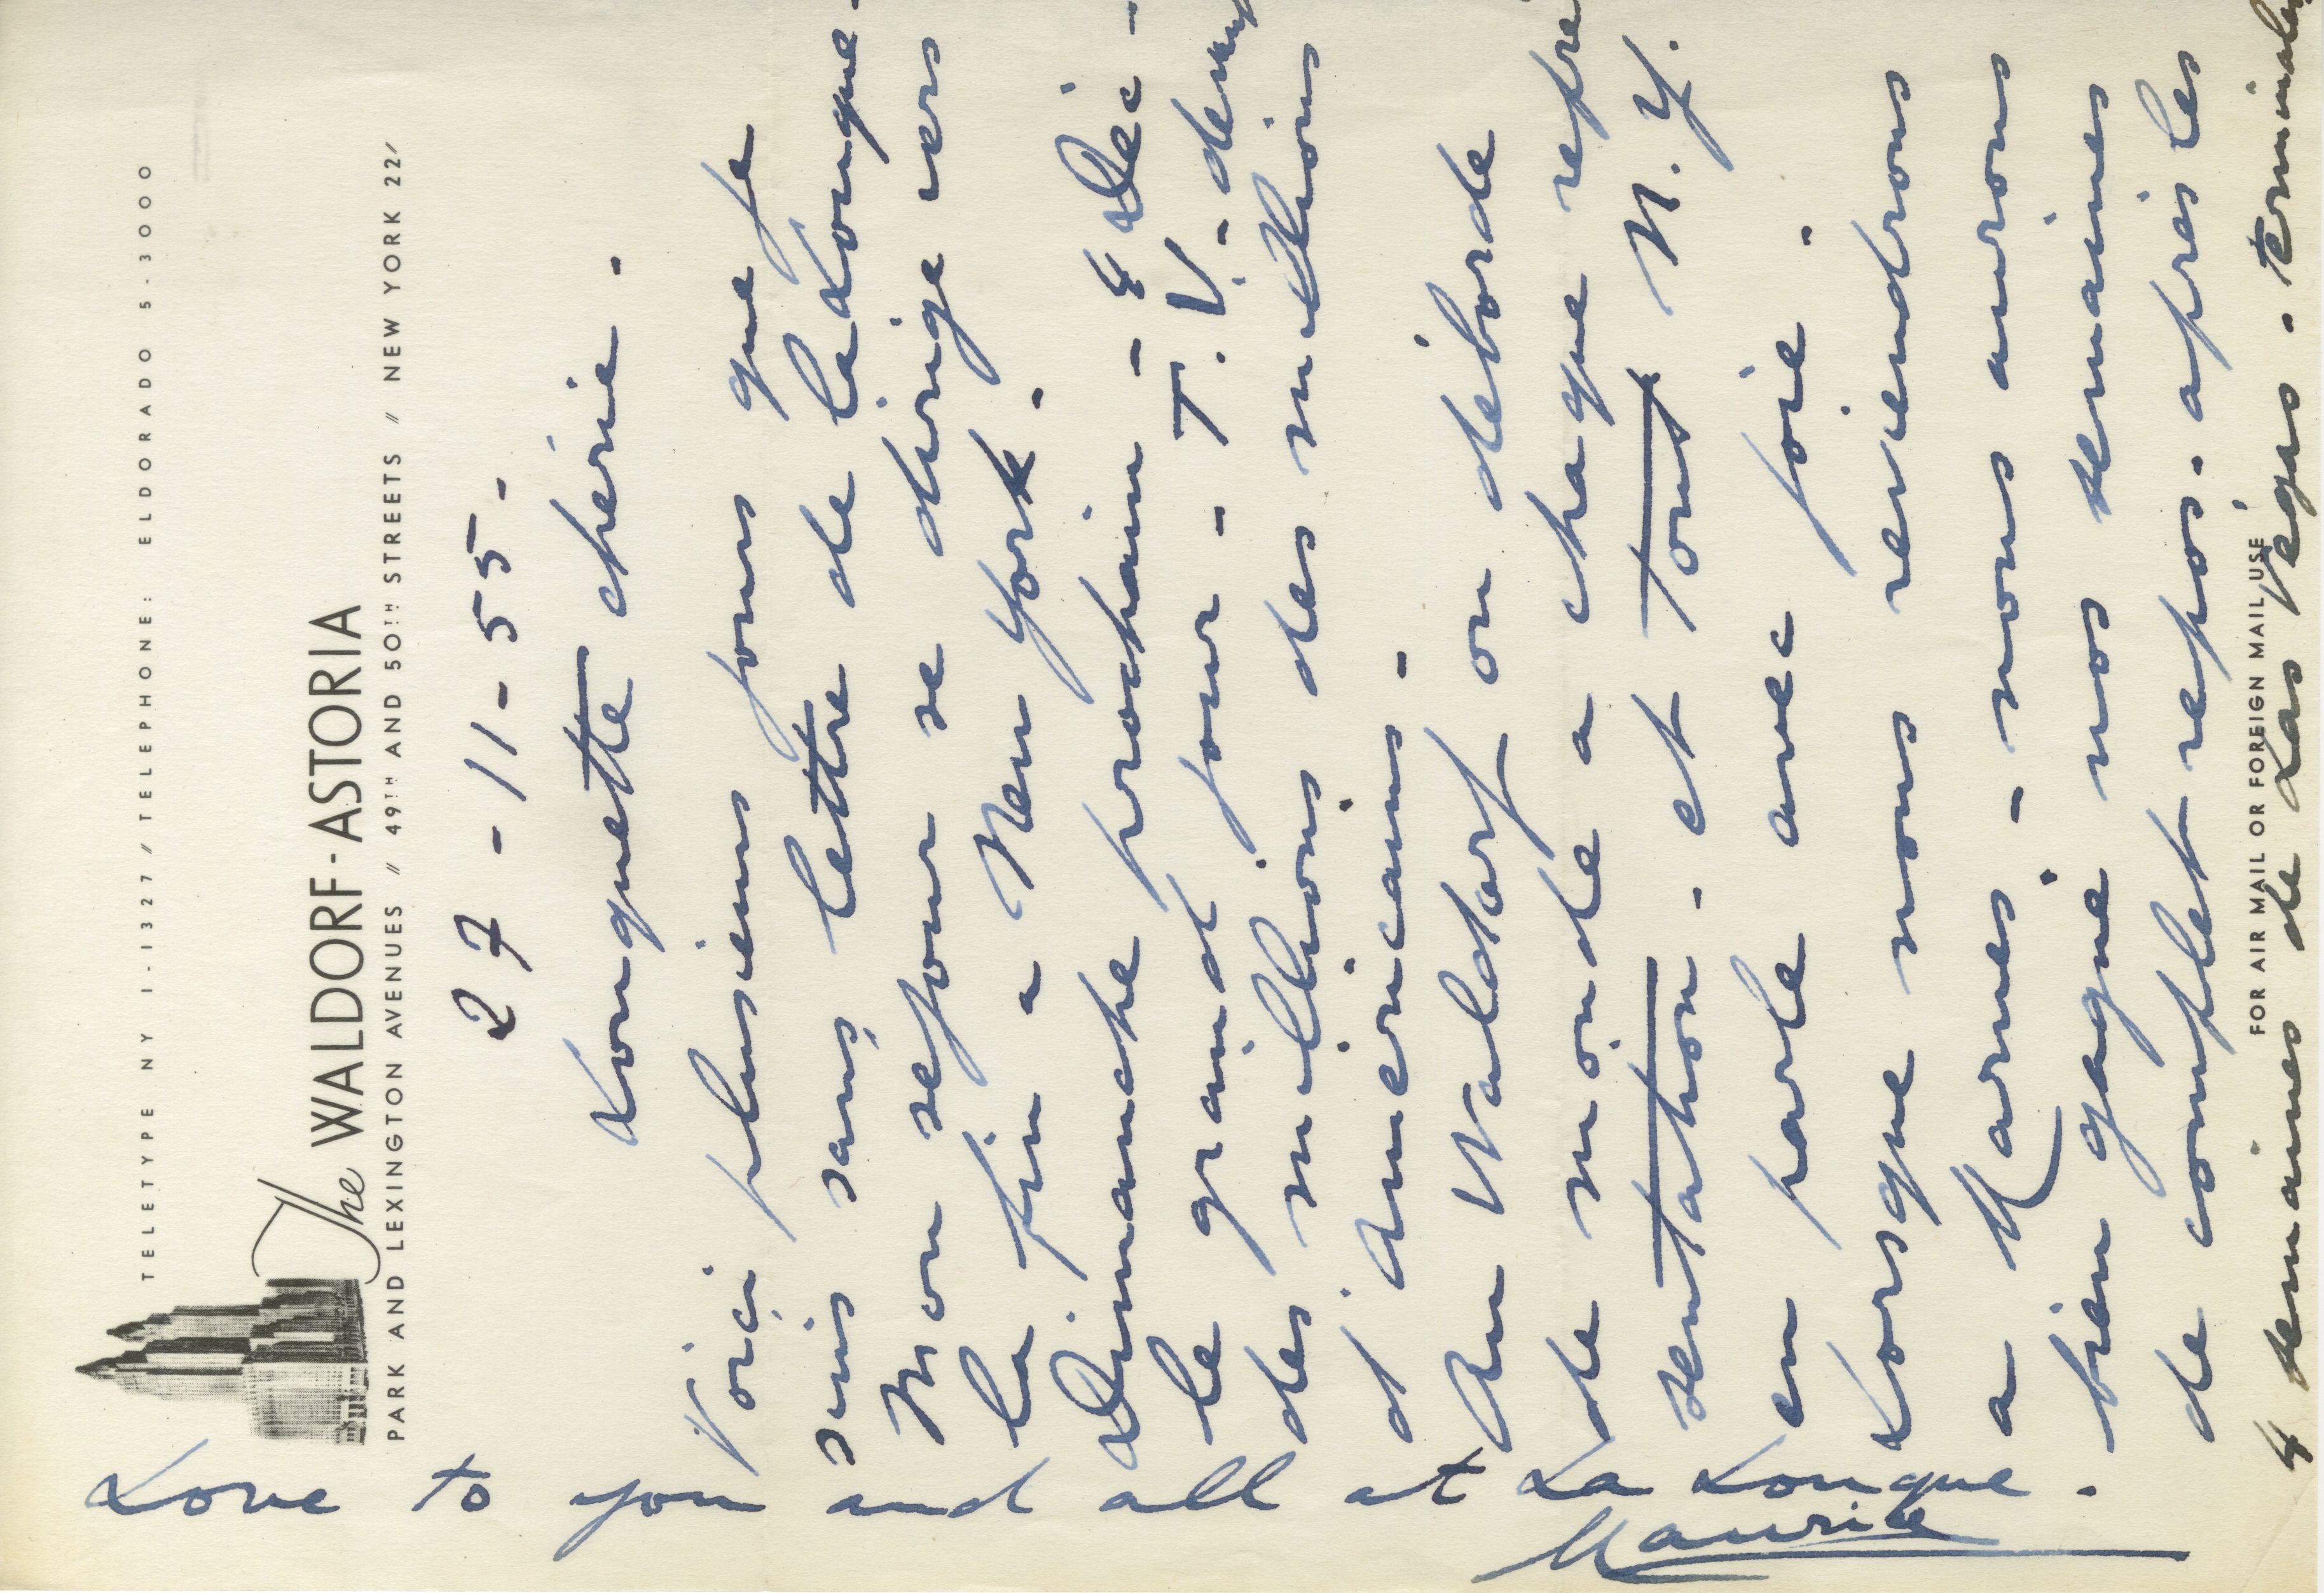 TELETYPE NY 1-1327 // TELEPHONE: ELDORADO 5-3000
The WALDORF-ASTORIA
PARK AND LEXINGTON AVENUES // 49TH AND 50TH STREETS // NEW YORK 22
27-11-55-
Louquette chérie.
Voici plusieurs jours que je
suis sans lettre de la Louque-
Mon séjour se dirige vers
la fin a New York.
Dimanche prochain - 4 Déc -
le grand jour - T.V. -
des millions des millions
d'Américains.
Au Waldorf on déborde
de monde a chaque repré
sentation - et tout N.Y.
en parle avec joie.
Lorsque nous reviendrons
a Marnes - nous aurons
bien gagné nos semaines
de complet repos. après les
4 semaines de Las Végas -
FOR AIR MAIL OR FOREIGN MAIL USE
Love to you and all at La Louque.
Maurice